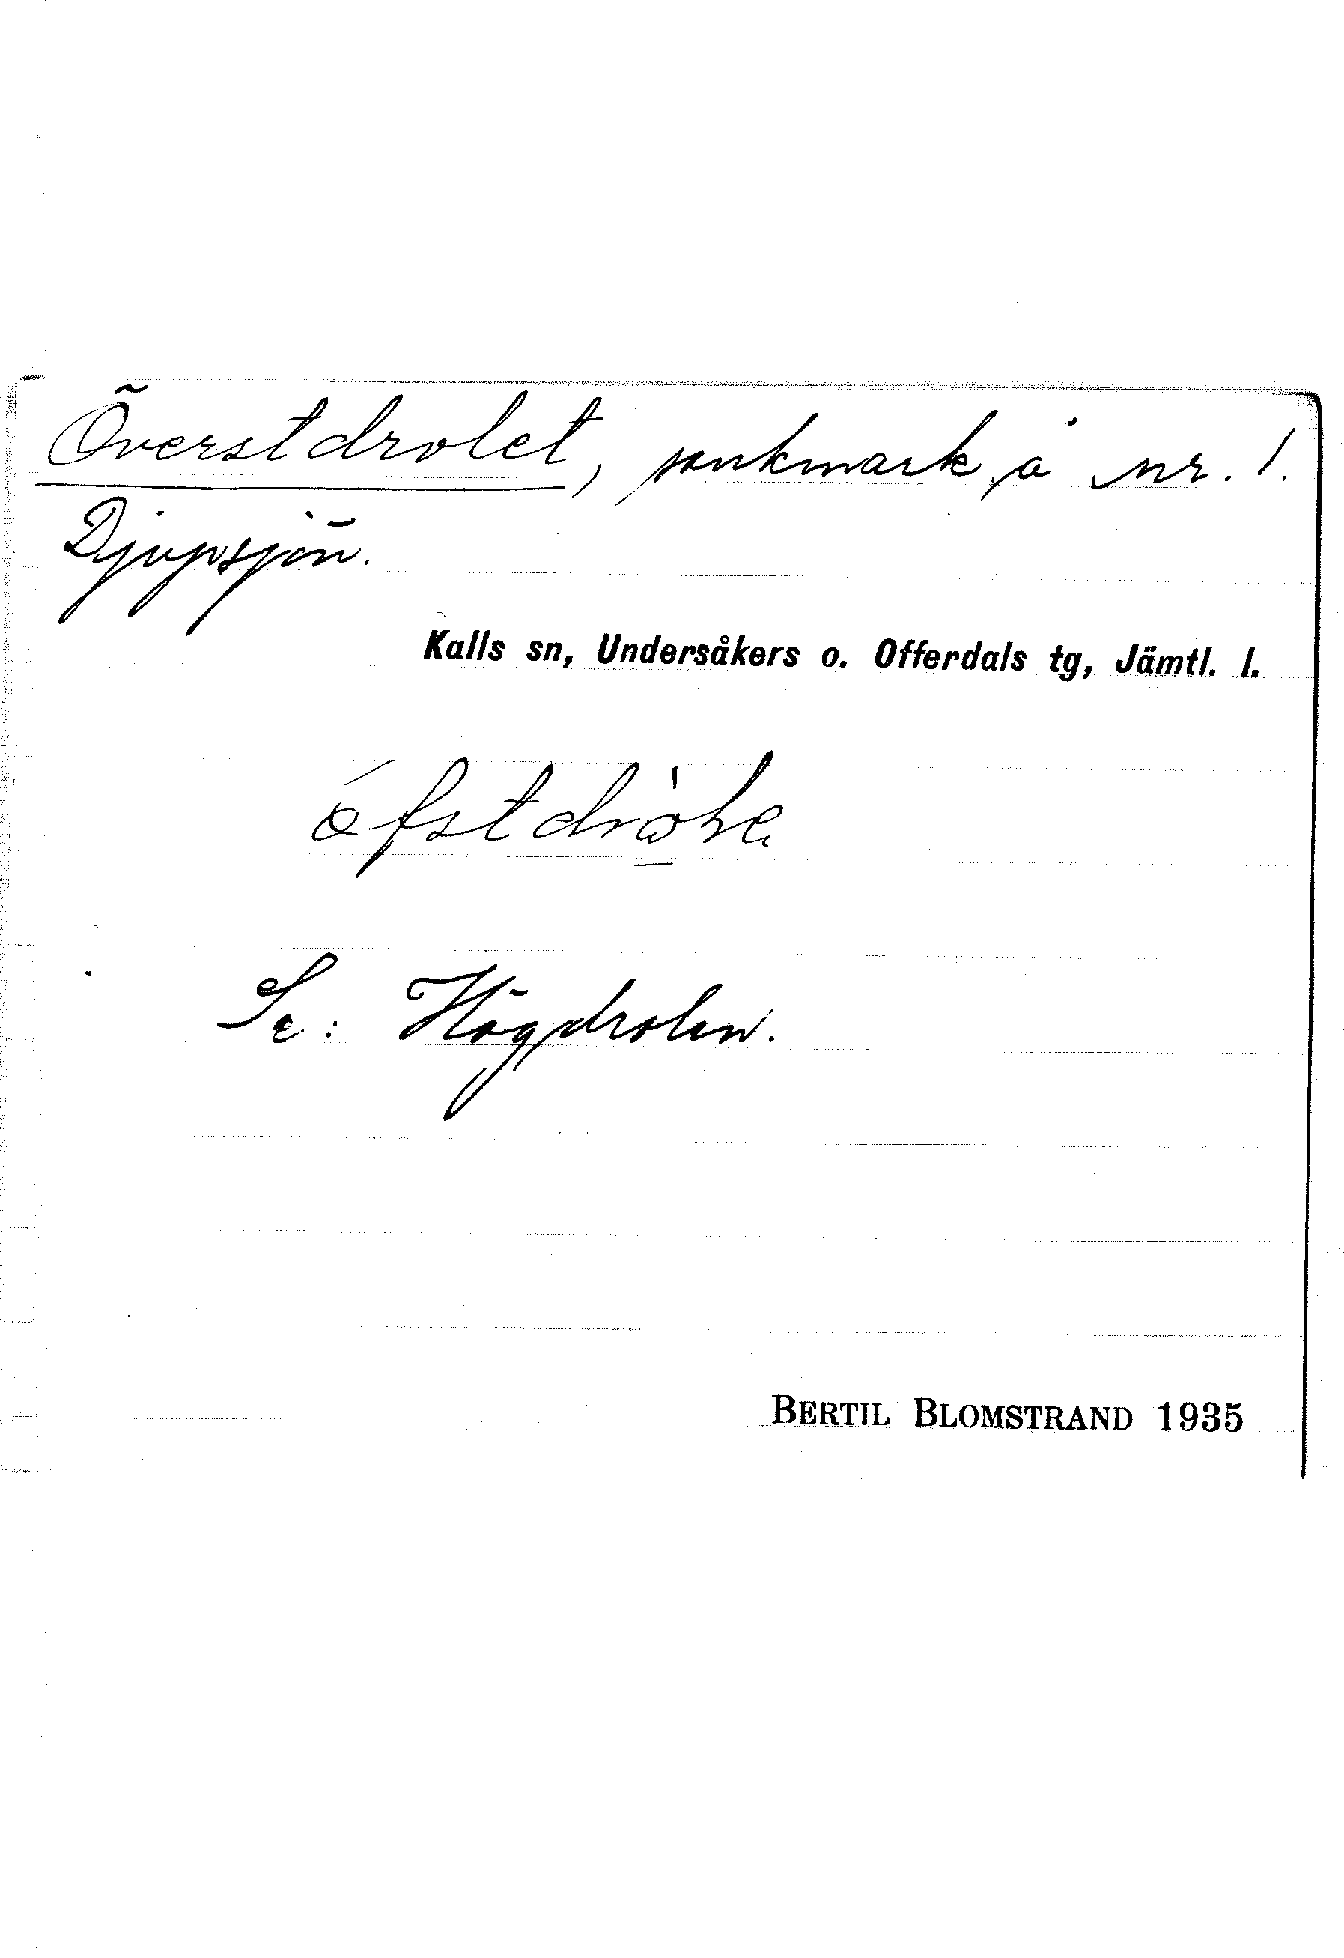 Överstdrolet, sankmark å nr. 1.
Djupsjön.
Kalls sn, Undersåkers o. Offerdals tg, Jämtl. l.
Se: Högdrolen.
BERTIL BLOMSTRAND 1935